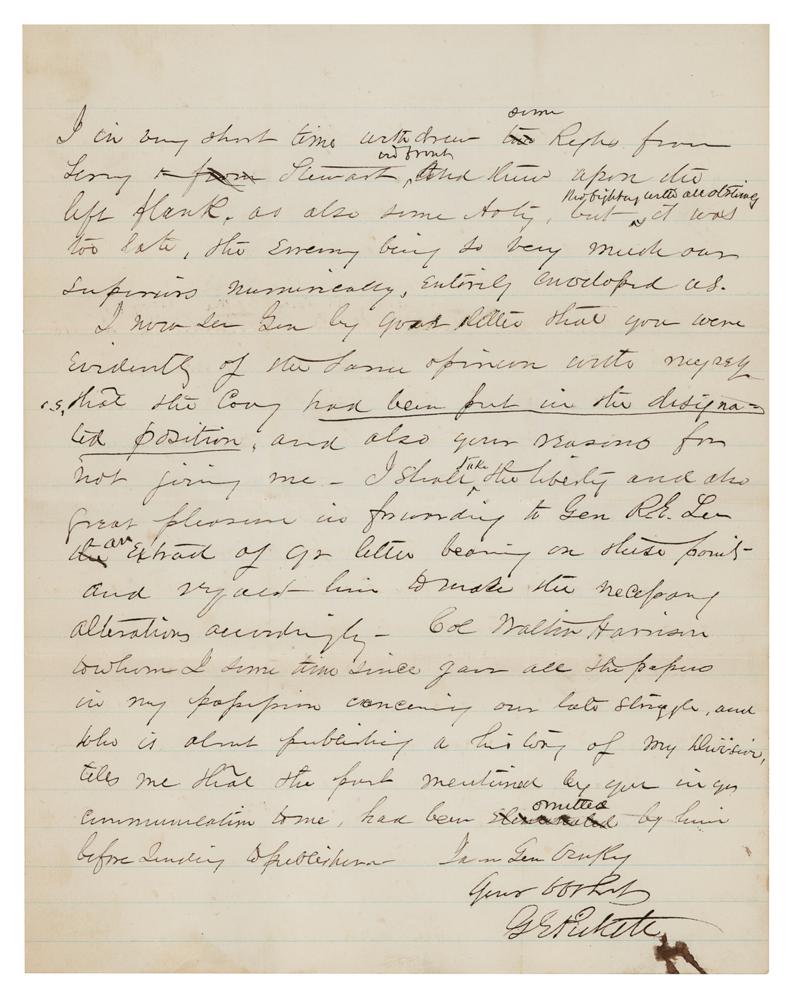 some
I in very short time withdrew two Regts from
in front
Terry & from Stewart, and threw upon the
the fighting with all obstinacy
left flank, as also some Arty, but it was
too late, the Enemy being so very much our
superiors numerically, entirely enveloped us.
I now see Gen by your letter that you were
evidently of the same opinion with myself
i.e. that the Cavy had been put in the designa=
ted position, and also your reasons for
take
not joining me - I shall the liberty and also
great pleasure in forwarding to Gen R.E. Lee
the an Extract of yr letter bearing on these points
and request him to make the necessary
alterations accordingly - Col Walter Harrison
to whom I some time since gave all the papers
in my possession concerning our late struggle, and
who is about publishing a history of my Division,
tells me that the part mentioned by you in yr
omitted
communication to me, had been by him
before sending to publishers - I am Gen
Your Obt Svt
G E Pickett